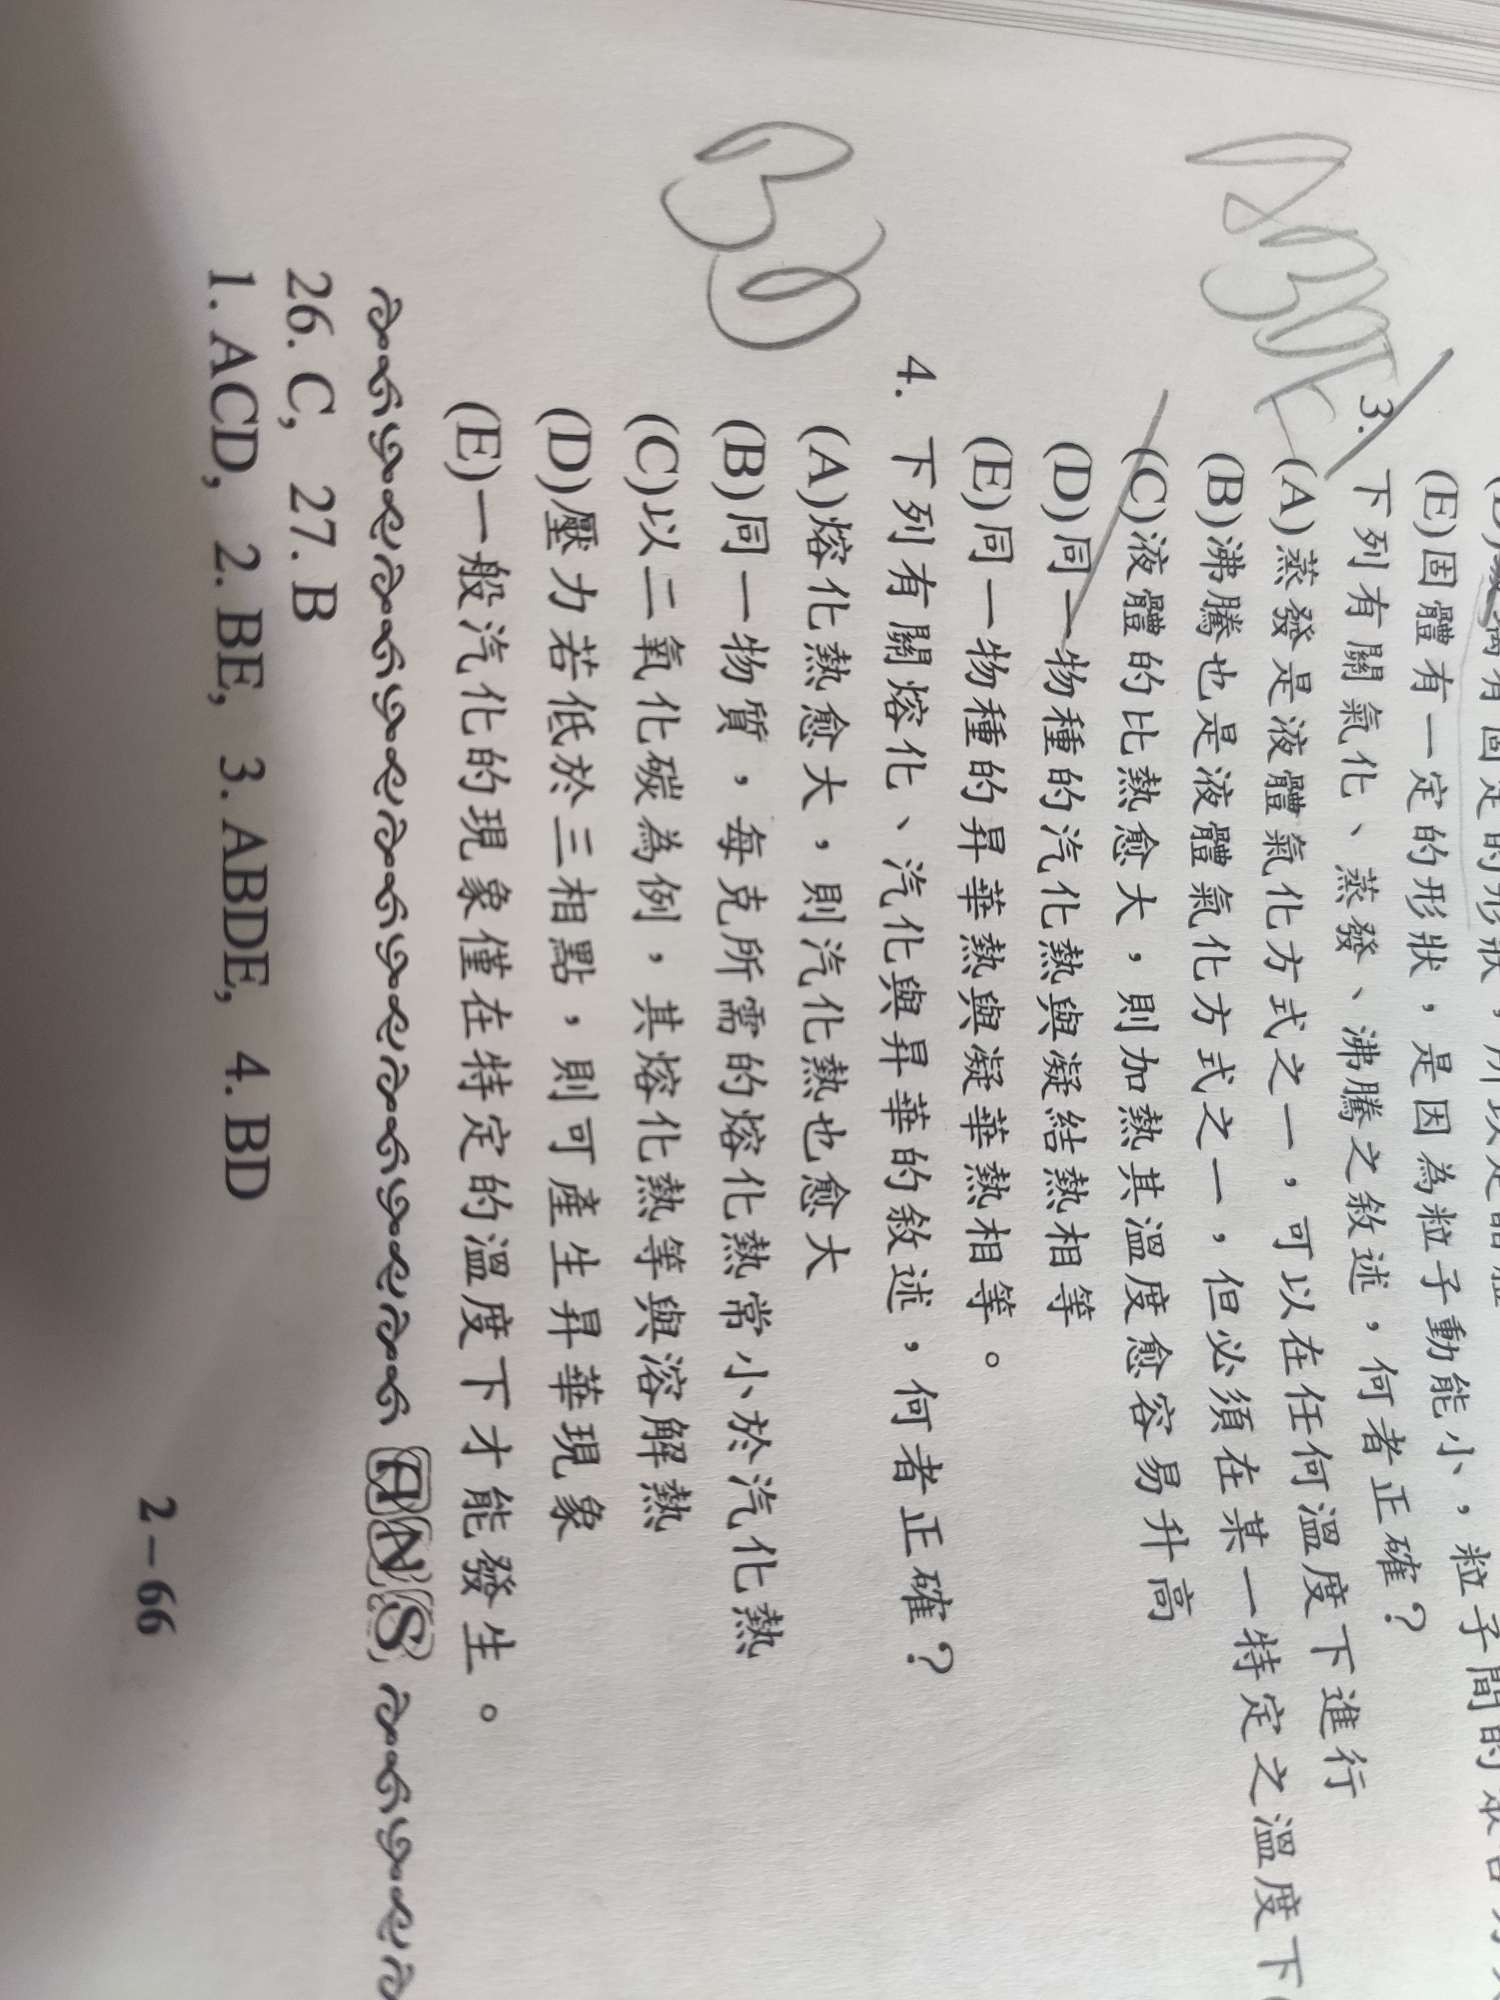 (E)固體有一定的形狀，是因為粒子動能小，粒子間的
3. 下列有關氣化、蒸發、沸騰之敘述，何者正確？
(A)蒸發是液體氣化方式之一，可以在任何溫度下進行
(B)沸騰也是液體氣化方式之一，但必須在某一特定之溫度下
(C)液體的比熱愈大，則加熱其溫度愈容易升高
(D)同一物種的汽化熱與凝結熱相等
(E)同一物種的昇華熱與凝華熱相等。
4. 下列有關熔化、汽化與昇華的敘述，何者正確？
(A)熔化熱愈大，則汽化熱也愈大
(B)同一物質，每克所需的熔化熱常小於汽化熱
(C)以二氧化碳為例，其熔化熱等與溶解熱
(D)壓力若低於三相點，則可產生昇華現象
(E)一般汽化的現象僅在特定的溫度下才能發生。
BD
ANS
26. C, 27. B
1. ACD, 2. BE, 3. ABDE, 4. BD
2－66